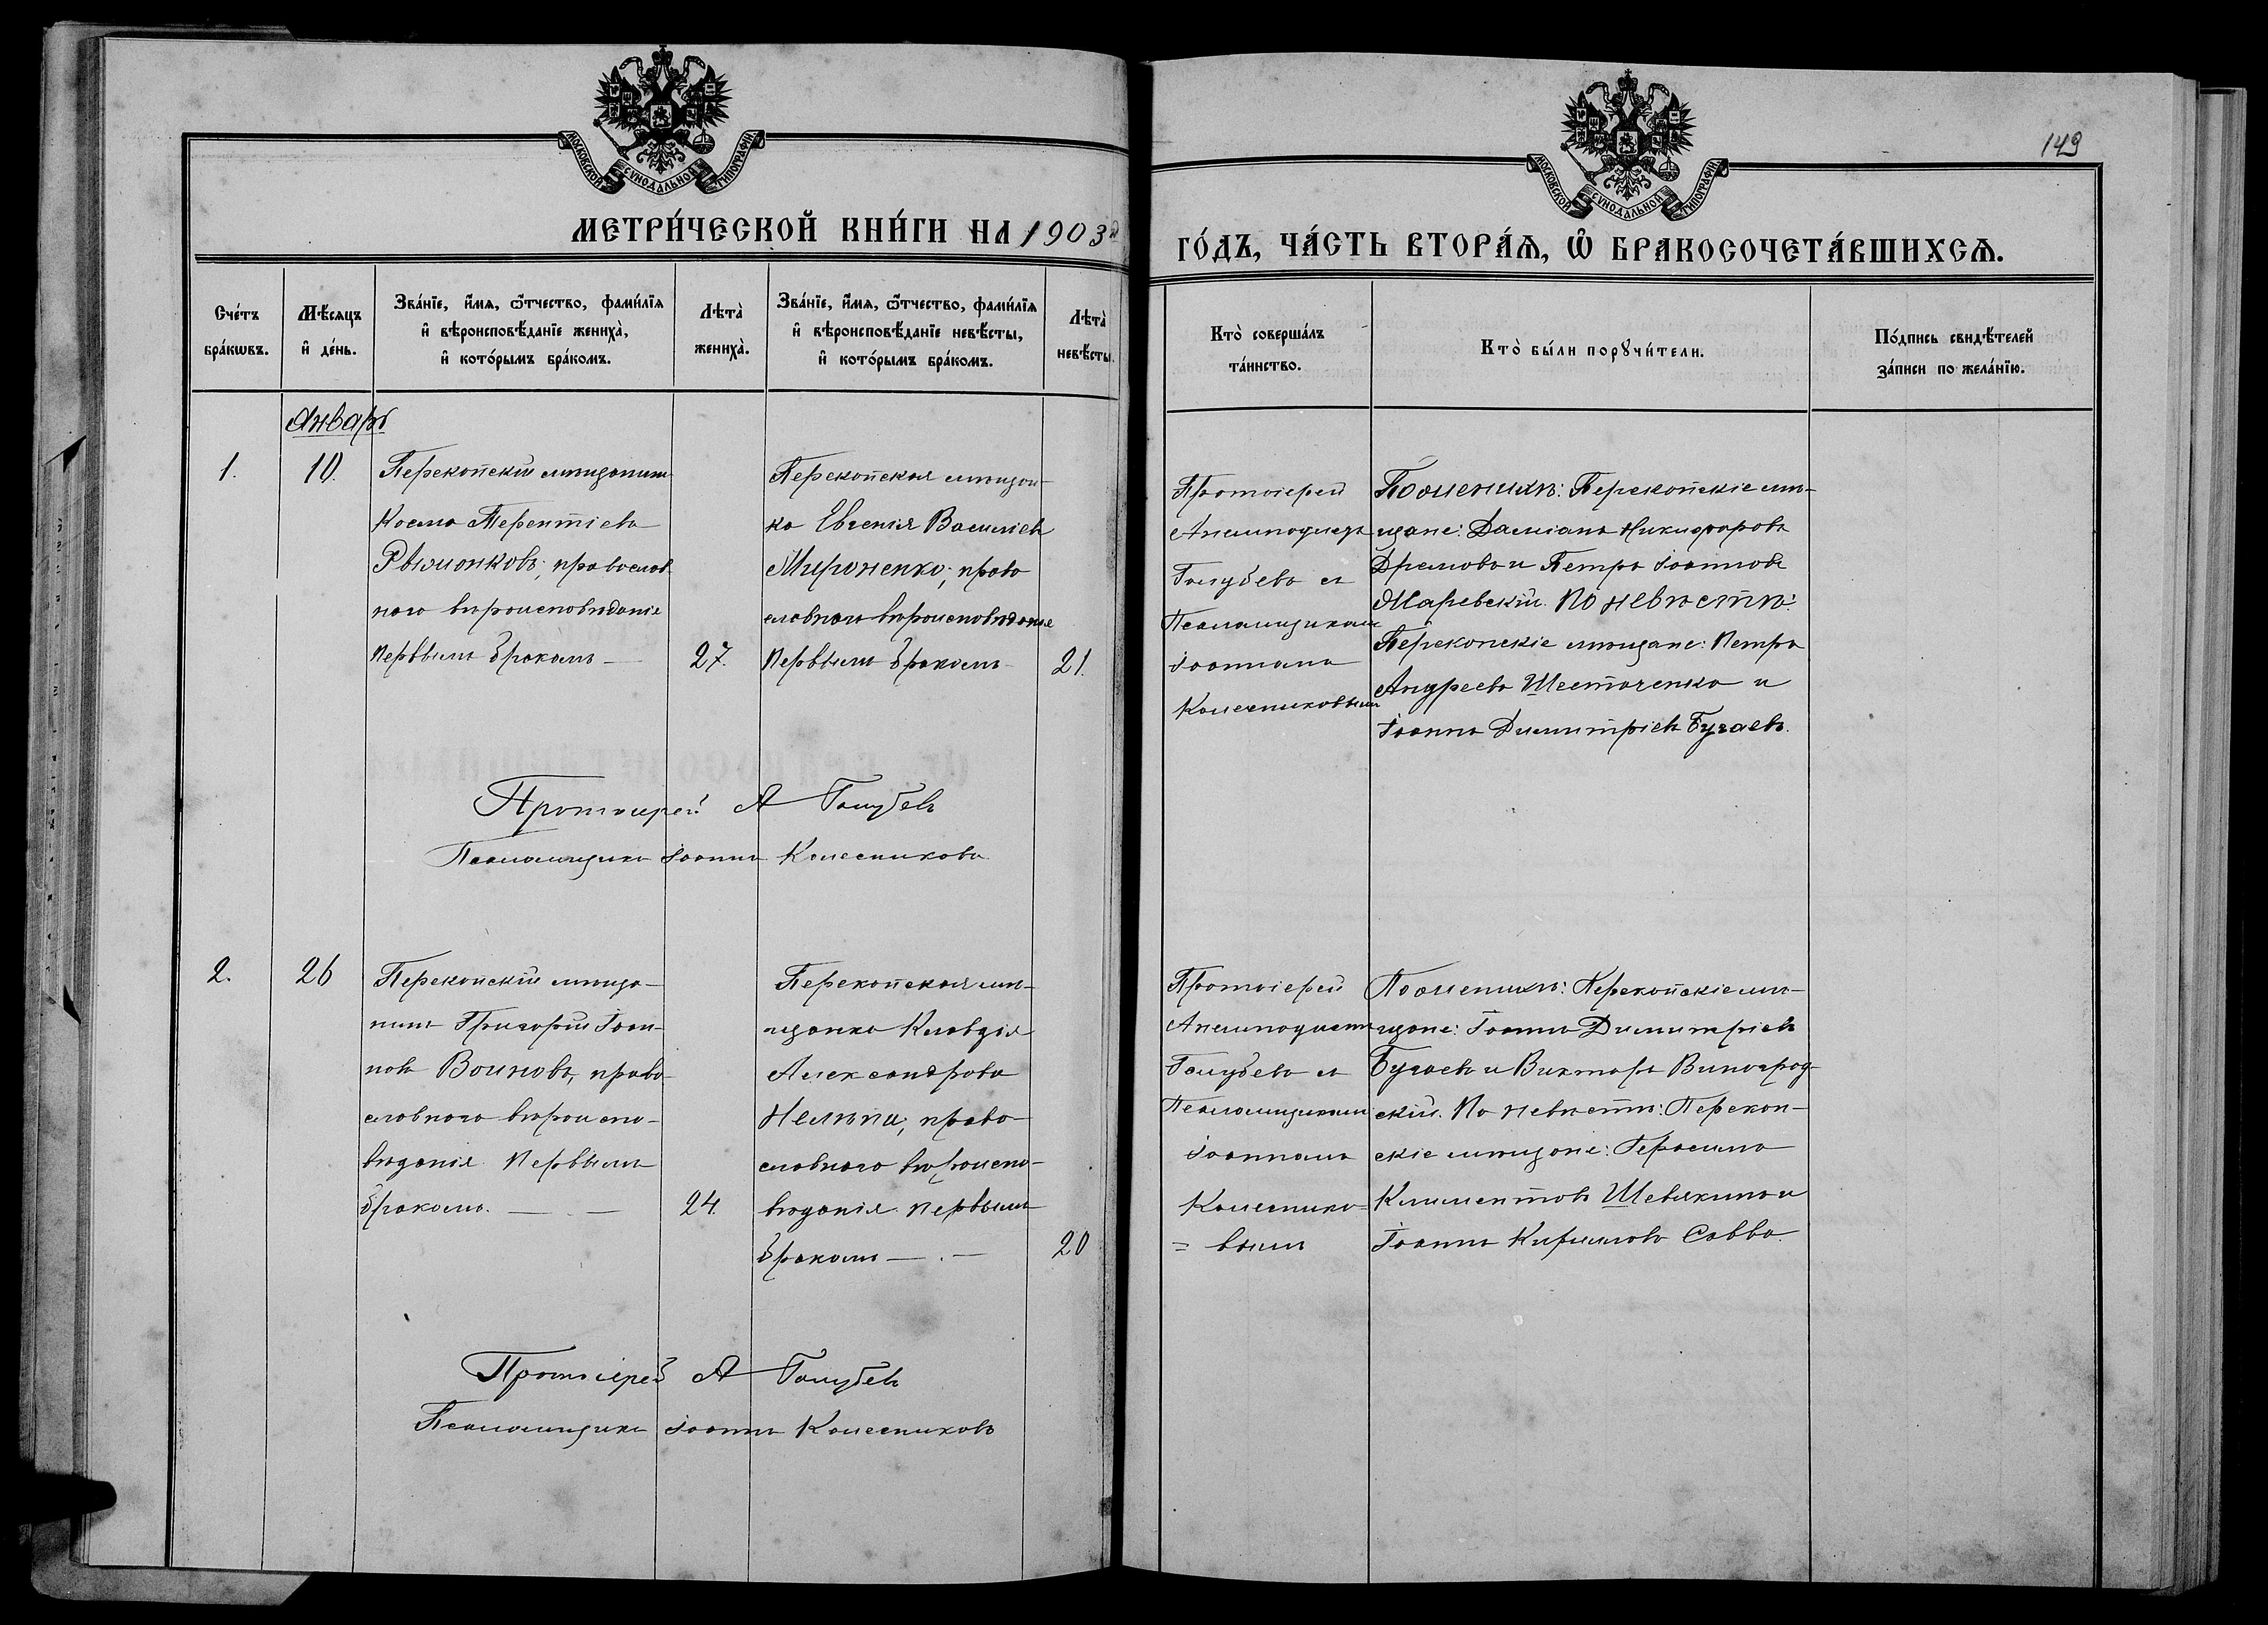 149
МОСКОВСКОЙ СѴНОДАЛЬНОЙ ТИПОГРАФІИ
МОСКОВСКОЙ СѴНОДАЛЬНОЙ ТИПОГРАФІИ
МЕТРИ́ЧЕСКОЙ КНИ́ГИ НА 1903й
ГО́ДЪ, ЧА́СТЬ ВТОРА́Ѧ, Ѽ БРАКОСОЧЕТА́ВШИХСѦ.
Сче́тъ бра́кѡвъ.
Мѣ́сяцъ и҆ де́нь.
Зва́нїе, и҆́мѧ, ѻ҆́тчество, фами́лїѧ
и҆ вѣроисповѣ́данїе жениха̀,
и҆ кото́рымъ бра́комъ.
Лѣта̀ жениха̀.
Зва́нїе, и҆́мѧ, ѻ҆́тчество, фами́лїѧ
и҆ вѣроисповѣ́данїе невѣ́сты,
и҆ кото́рымъ бра́комъ.
Лѣта̀ невѣ́сты.
Кто̀ соверша́лъ
та́инство.
Кто̀ бы́ли порꙋчи́тели.
По́дпись свидѣ́телей
за́писи по жела́нїю.
Январь
1.
10.
Перекопскій мѣщанинъ
Косма Терентіевъ
православ
наго вѣроисповѣданія
первымъ бракомъ —
27.
Перекопская мѣщан-
ка Евгенія Васильев
Мироненко, право
славнаго вѣроисповѣданія
первымъ бракомъ
21.
Протоіерей
Анемподистъ
Голубевъ съ
Псаломщикомъ
Іоанномъ
Колесниковымъ
По женихѣ: Перекопскіе мѣ-
щане: Даміанъ Никифоровъ
Дремовъ и Петръ Іоанновъ
Маревскій. По невѣстѣ:
Перекопскіе мѣщане: Петръ
Андреевъ Шестаченко и
Іоаннъ Димитріевъ Бугаевъ.
Протоіерей А Голубевъ
Псаломщикъ Іоаннъ Колесниковъ
2.
26
Перекопскій мѣща-
нинъ Григорій Іоан-
новъ Воиновъ, право-
славнаго вѣроиспо-
вѣданія первымъ
бракомъ. — . —
24.
Перекопская мѣ-
щанка Клавдія
Александрова
право-
славнаго вѣроиспо-
вѣданія первымъ
бракомъ — . —
20
Протоіерей
Анемподистъ
Голубевъ съ
Псаломщикомъ
Іоанномъ
Колеснико=
= вымъ
По женихѣ: Перекопскіе мѣ-
щане: Іоаннъ Димитріевъ
Бугаевъ и Викторъ Виноград-
скій. По невѣстѣ: Перекоп-
скіе мѣщане: Герасимъ
Климентовъ Шевякинъ и
Іоаннъ Кирилловъ Савва.
Протоіерей А Голубевъ
Псаломщикъ Іоаннъ Колесниковъ